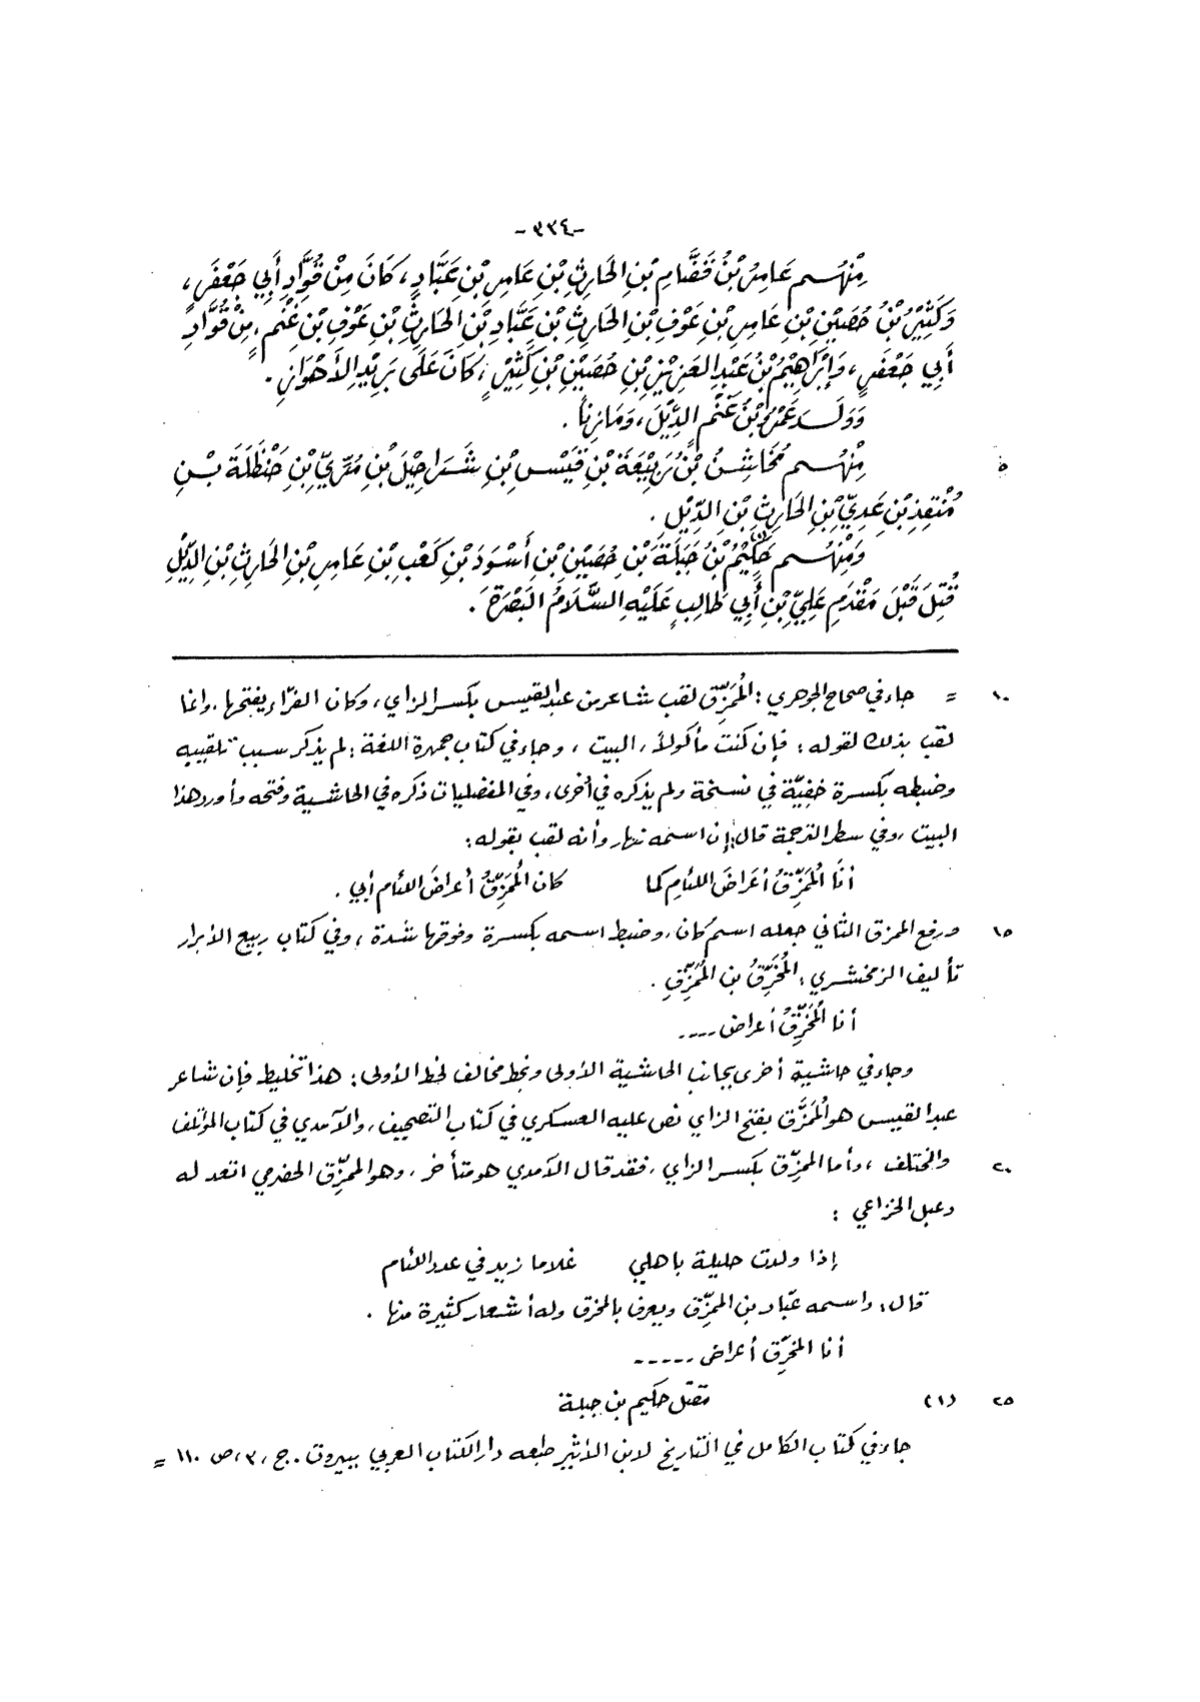 -٣٣٤-
مِنْهُم عَامِرُ بْنُ فَضَّامِ بْنِ الحَارِثِ بْنِ عَامِرِ بْنِ عَبَّادٍ، كَانَ مِنْ قُوَّادِ أَبِي جَعْفَرٍ،
وَكَثِيْرُ بْنُ حُصَيْنِ بْنِ عَامِرِ بْنِ عَوْفِ بْنِ الحَارِثِ بْنِ عَبَّادِ بْنِ الحَارِثِ بْنِ عَوْفِ بْنِ غَنْمٍ، مِنْ قُوَّادِ
أَبِي جَعْفَرٍ، وَإِبْرَاهِيْمُ بْنُ عَبْدِ العَزِيْزِ بْنِ حُصَيْنِ بْنِ كَثِيْرٍ، كَانَ عَلَى بَرِيْدِ الأَهْوَازِ.
وَوَلَدَ عَمْرُو بْنُ غَنْمٍ الدِّيْلَ، وَمَازِناً.
٥ مِنْهُم مُخَاشِنُ بْنُ رَبِيْعَةَ بْنِ قَيْسِ بْنِ شَرَاحِيْلَ بْنِ مُرِّيِّ بْنِ حَنْظَلَةَ بْنِ
مُنْقِذِ بْنِ عَدِيِّ بْنِ الحَارِثِ بْنِ الدِّيْلِ.
وَمِنْهُم حَكِيْمُ (١) بْنُ جَبَلَةَ بْنِ حُصَيْنِ بْنِ أَسْوَدَ بْنِ كَعْبِ بْنِ عَامِرِ بْنِ الحَارِثِ بْنِ الدِّيْلِ
قُتِلَ قَبْلَ مَقْدَمِ عَلِيِّ بْنِ أَبِي طَالِبٍ عَلَيْهِ السَّلَامُ البَصْرَةَ.
١٠ = جاء في صحاح الجوهري: المُمَزِّق لقب شاعر من عبد القيس بكسر الزاي، وكان الفرّاء يفتحها، وإنما
لقب بذلك لقوله: فإن كنت مأكولاً، البيت، وجاء في كتاب جمهرة اللغة: لم يذكر سبب تلقيبه
وضبطه بكسرة خفيّة في نسخة ولم يذكره في أخرى، وفي المفضليات ذكره في الحاشية وفتحه وأورد هذا
البيت، وفي سطر الترجمة قال: إن اسمه نهار وأنه لقب بقوله:
أنا المُمَزِّقُ أعراضَ اللئامِ كما كان المُمَزِّقُ أعراضَ اللئام أبي.
١٥ ورفع الممزق الثاني جعله اسم كان، وضبط اسمه بكسرة وفوقها شدة، وفي كتاب ربيع الأبرار
تأليف الزمخشري: المُخَرِّقُ بن المُمَزِّقِ.
أنا المُخَرِّقُ أعراض ....
وجاء في حاشية أخرى بجانب الحاشية الأولى وبخط مخالف لخط الأولى: هذا تخليط فإن شاعر
عبد القيس هو المُمَزَّق بفتح الزاي نص عليه العسكري في كتاب التصحيف، والآمدي في كتاب المؤتلف
٢٠ والمختلف، وأما الممزِّق بكسر الزاي، فقد قال الآمدي هو متأخر، وهو الممزِّق الحضرمي انتقد له
دعبل الخزاعي:
إذا ولدت حليلة باهلي غلاما زيد في عدد اللئام
قال: واسمه عبّاد بن الممزِّق ويعرف بالمخرق وله أشعار كثيرة منها.
أنا المخرِّق أعراض .....
٢٥ (١) مقتل حكيم بن جبلة
جاء في كتاب الكامل في التاريخ لابن الأثير طبعه دار الكتاب العربي ببيروت. ج، ٣، ص ١١٠ =